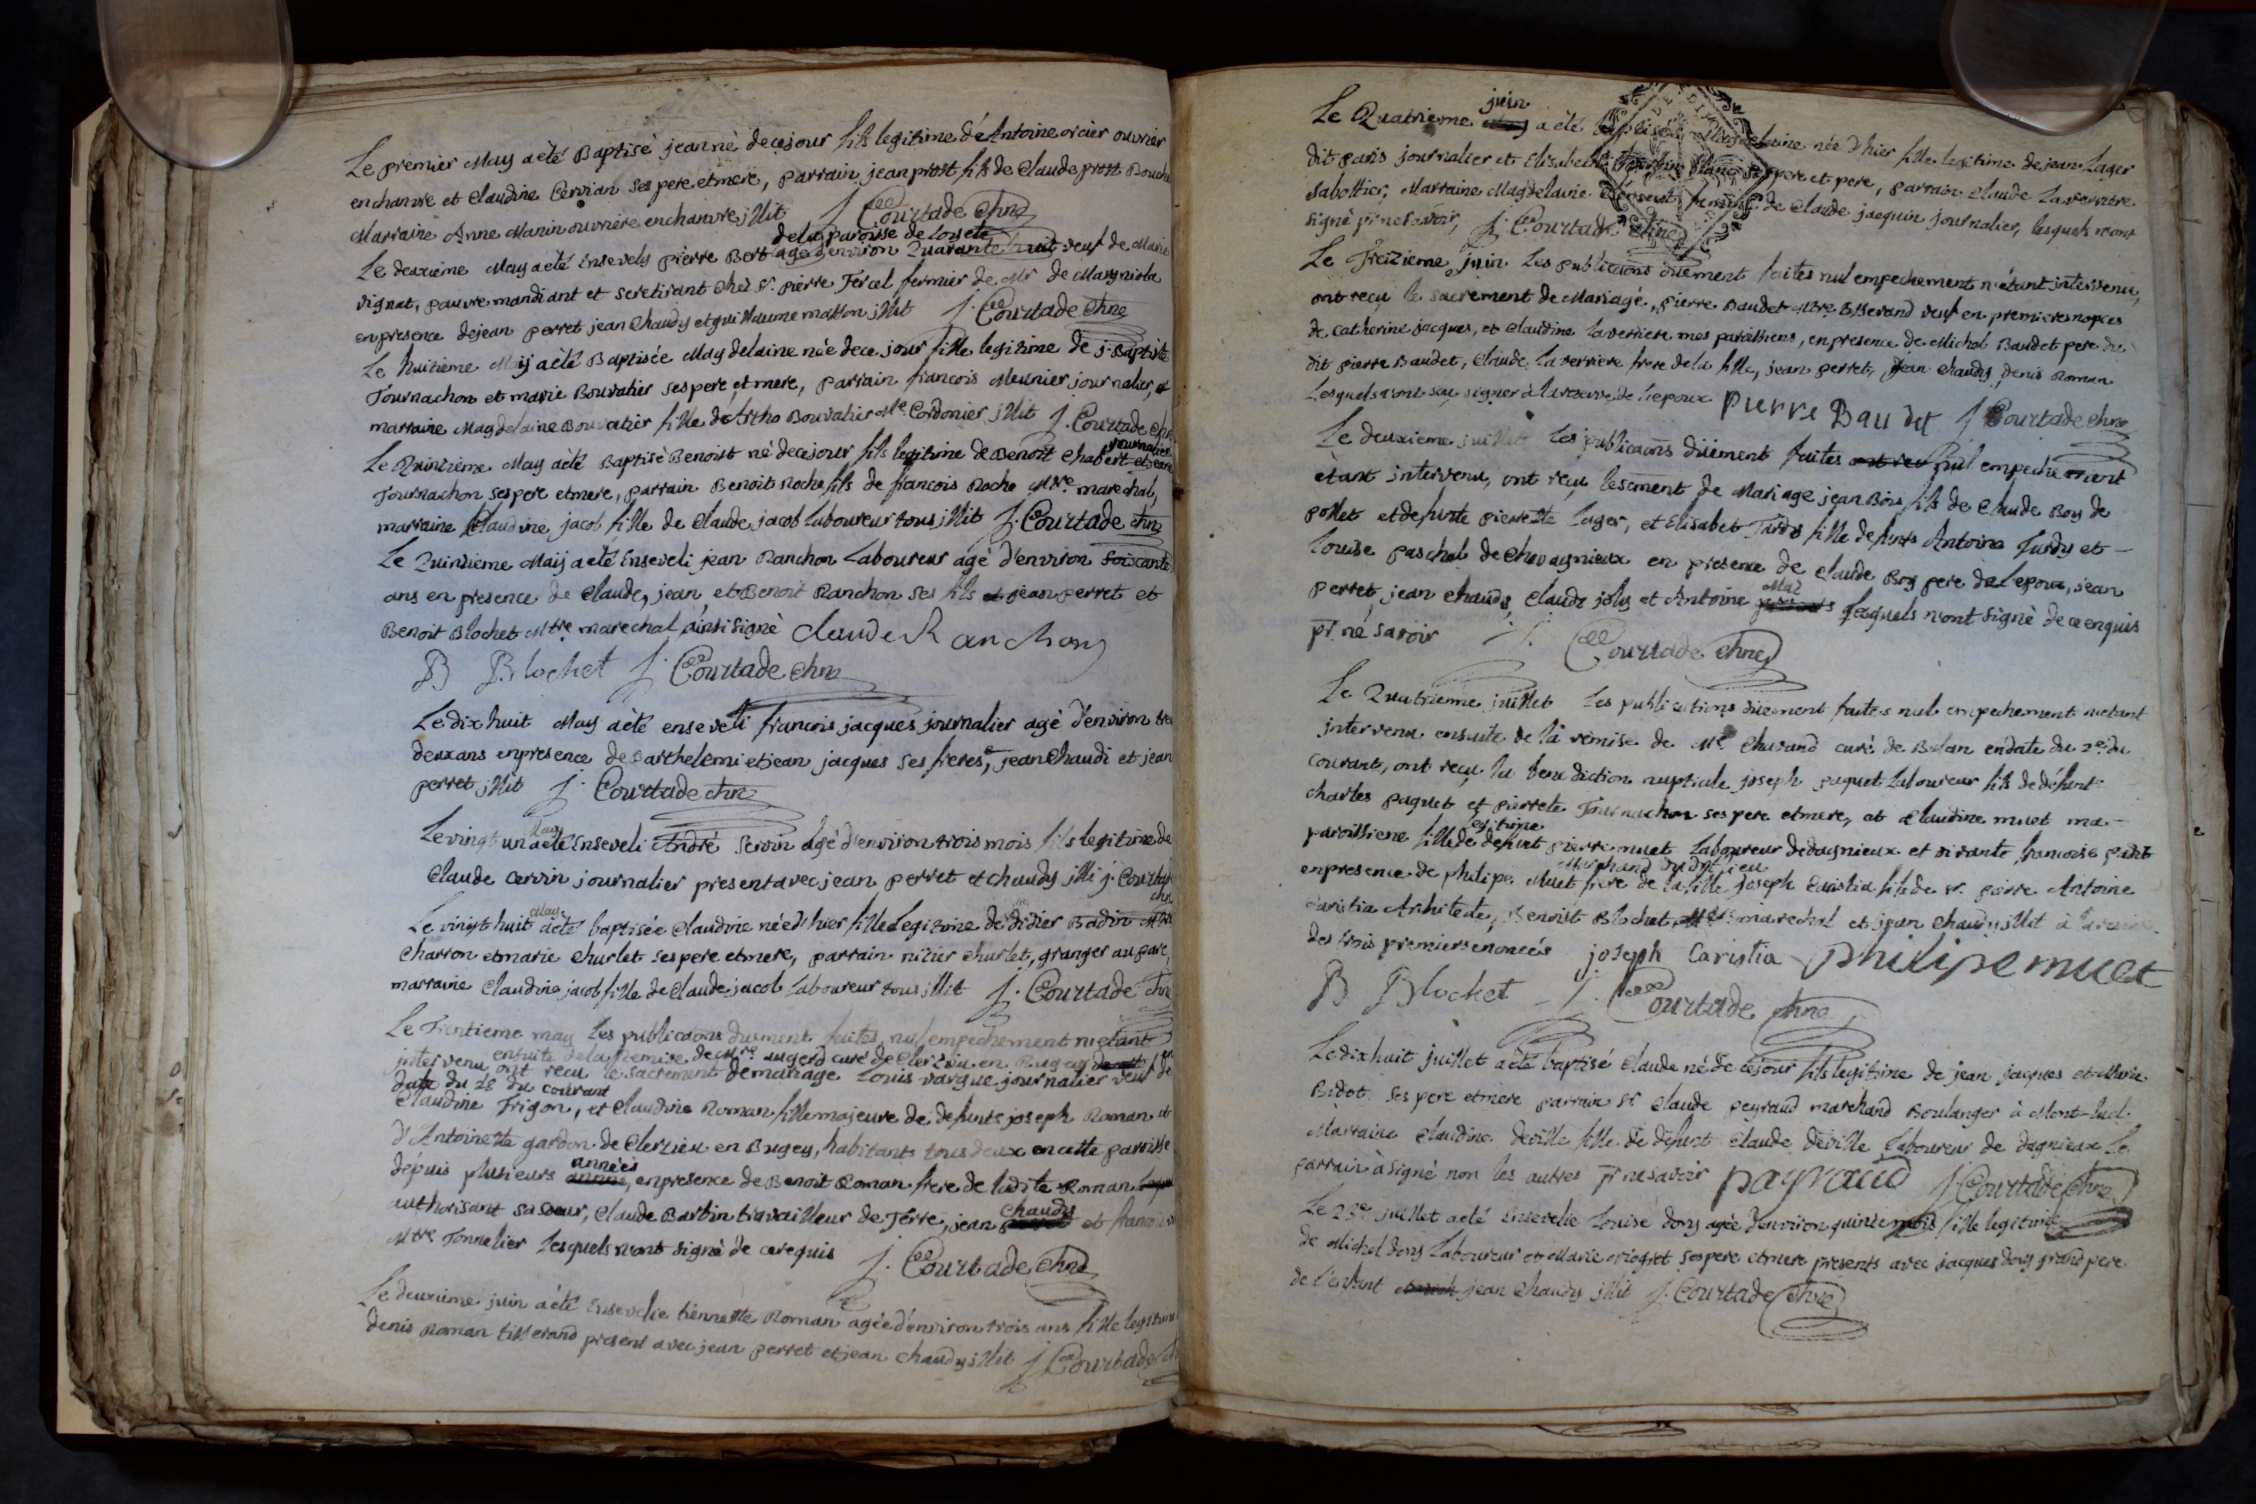 Le premier May a été Baptisé jean né de ce jour fils legitime d'Antoine orcier ouvrier
en chanvre et Claudine Cervian ses pere et mere, parrain jean prost fils de Claude prost
Marraine Anne Manin ouvriere en chanvre illit J. Courtade
Le deuxieme May a été Ensevely pierre Bert agé d'environ Quarante huit veuf de Marie
de la paroisse de
vignat, pauvre mandiant et se retirant chés Sr. pierre Tercel fermier de Mr de
en presence de jean perret jean Chaudy et guillaume masson illit J. Courtade
Le huitieme May a été Baptisée Magdelaine née de ce jour fille legitime de j. Baptiste
Tournachon et marie Bouvatier ses pere et mere, parrain francois Meunier journalier, et
marraine Magdelaine Bouvatier fille de Bouvatier Cordonier illit J. Courtade
journalier
Le Quinzieme May a été Baptisé Benoist né de ce jour fils legitime de Benoit Chabert et
Tournachon ses pere et mere, parrain Benoit Roche fils de francois Roche Mtre. marechal,
marraine Claudine jacob fille de Claude jacob laboureur tous illit J. Courtade
Le Quinzieme May a été Enseveli jean Ranchon Laboureur agé d'environ Soixante
ans en presence de Claude, jean et Benoit Ranchon ses fils jean perret et
Benoit Blochet Mtre marechal ainsi signé Claude Ranchon
B Blochet J. Courtade
Le dix huit May a été enseveli francois jacques journalier agé d'environ
deux ans en presence de Barthelemi et jean jacques ses freres, jean Chaudi et jean
perret illit J. Courtade
May
Le vingt un a été Enseveli André Servin agé d'environ trois mois fils legitime de
Claude Cervin journalier present avec jean perret et chaudy illi J. Courtade
May
Le vingt huit a été baptisée Claudine née d'hier fille Legitime de Didier Badin
Charron et marie Churlet ses pere et mere, parrain nizier Churlet, granger au parc,
marraine Claudine jacob fille de Claude jacob Laboureur tous illit J. Courtade
Le Trentieme may Les publicaons duement faites, nul empechement n'etant
intervenu ensuite de la Remise de Mre. augerd curé de en Bugey
date du 28 du courant ont recu le sacrement de mariage Louis vargue journalier veuf de
Claudine Trigon, et Claudine Roman fille majeure de defunts joseph Roman et
d'Antoinette gardon de en Bugey, habitants tous deux en cette paroisse
depuis plusieurs années, en presence de Benoit Roman frere de ladite Roman
authorisant sa soeur, Claude Barbin travailleur de Terre, jean chaudy et francois
Mtre Tonnelier Lesquels n'ont signé de ce requis J. Courtade
Le deuxieme juin a été Ensevelie tiennette Roman agée d'environ trois ans fille legitime
denis Roman tisserand present avec jean perret et jean chaudy illit J. Courtade
Le Quatrieme juin a été baptisée Magdelaine née d'hier fille legitime de jean Lager
dit paris journalier et Elisabeth ses pere et pere, parrain Claude Laverriere
Sabottier, Marraine Magdelaine femme de Claude jacquin journalier, lesquels n'ont
signé pr. ne savoir, J. Courtade
Le Treizieme juin Les publicaons duement faites nul empechement n'etant intervenu,
ont reçu le sacrement de Mariage, pierre Baudet Mtre tisserand veuf en premieres nopces
de catherine jacques, et Claudine laverriere mes paroissiens, en presence de Michel Baudet pere du
dit pierre Baudet, Claude laverriere frere de la fille, jean perret, jean chaudy, denis Roman
Lesquels n'ont sçu signer à la reserve de l'epoux pierre Baudet J Courtade
Le deuxieme juillet Les publicaons duement faites nul empechement
etant intervenu, ont reçu le sement de Mariage jean Boy fils de Claude Boy de
pollet et defunte pierrette Lager, et Elisabet Turdy fille defunts Antoine Turdy et
Louise paschal de Chevagnieux en presence de Claude Boy pere de l'epoux, jean
perret, jean chaudy, Claude joly et Antoine lesquels n'ont signé de ce enquis
pr. ne savoir J. Courtade
Le Quatrieme juillet Les publications duement faites nul empechement netant
intervenu ensuite de la remise de Mr. Chavand curé de Balan en date du 2e. du
courant, ont reçu la benediction nuptiale joseph paquet Laboureur fils de défunt
charles paquet et pierrete Tournachon ses pere et mere, et Claudine muet ma
paroissiene fille legitime de defunt pierre muet Laboureur de dagnieux et vivante francoise
en presence de philipe Muet frere de la fille joseph Caristia fils de Sr. pierre Antoine
marchand du dit lieu
Caristia Architecte, Benoist Blochet Mtre marechal et jean chaudy illit à la reserve
des trois premiers enoncés joseph Caristia philipe muet
B Blochet J. Courtade
Le dix huit juillet a été baptisé Claude né de ce jour fils legitime de jean jacques et Marie
Bidot ses pere et mere parrain Sr Claude peyraud marchand Boulanger à Mont-luel
Marraine Claudine deville fille de defunt Claude deville Laboureur de dagnieux Le
parrain à signé non les autres pr ne savoir payraud J Courtade
Le 23e juillet a été Ensevelie Louise dony agée d'environ quinze mois fille legitime
de Michel dony Laboureur et Marie ses pere et mere presents avec jacques dony grand pere
de l'enfant jean chaudy illit J. Courtade